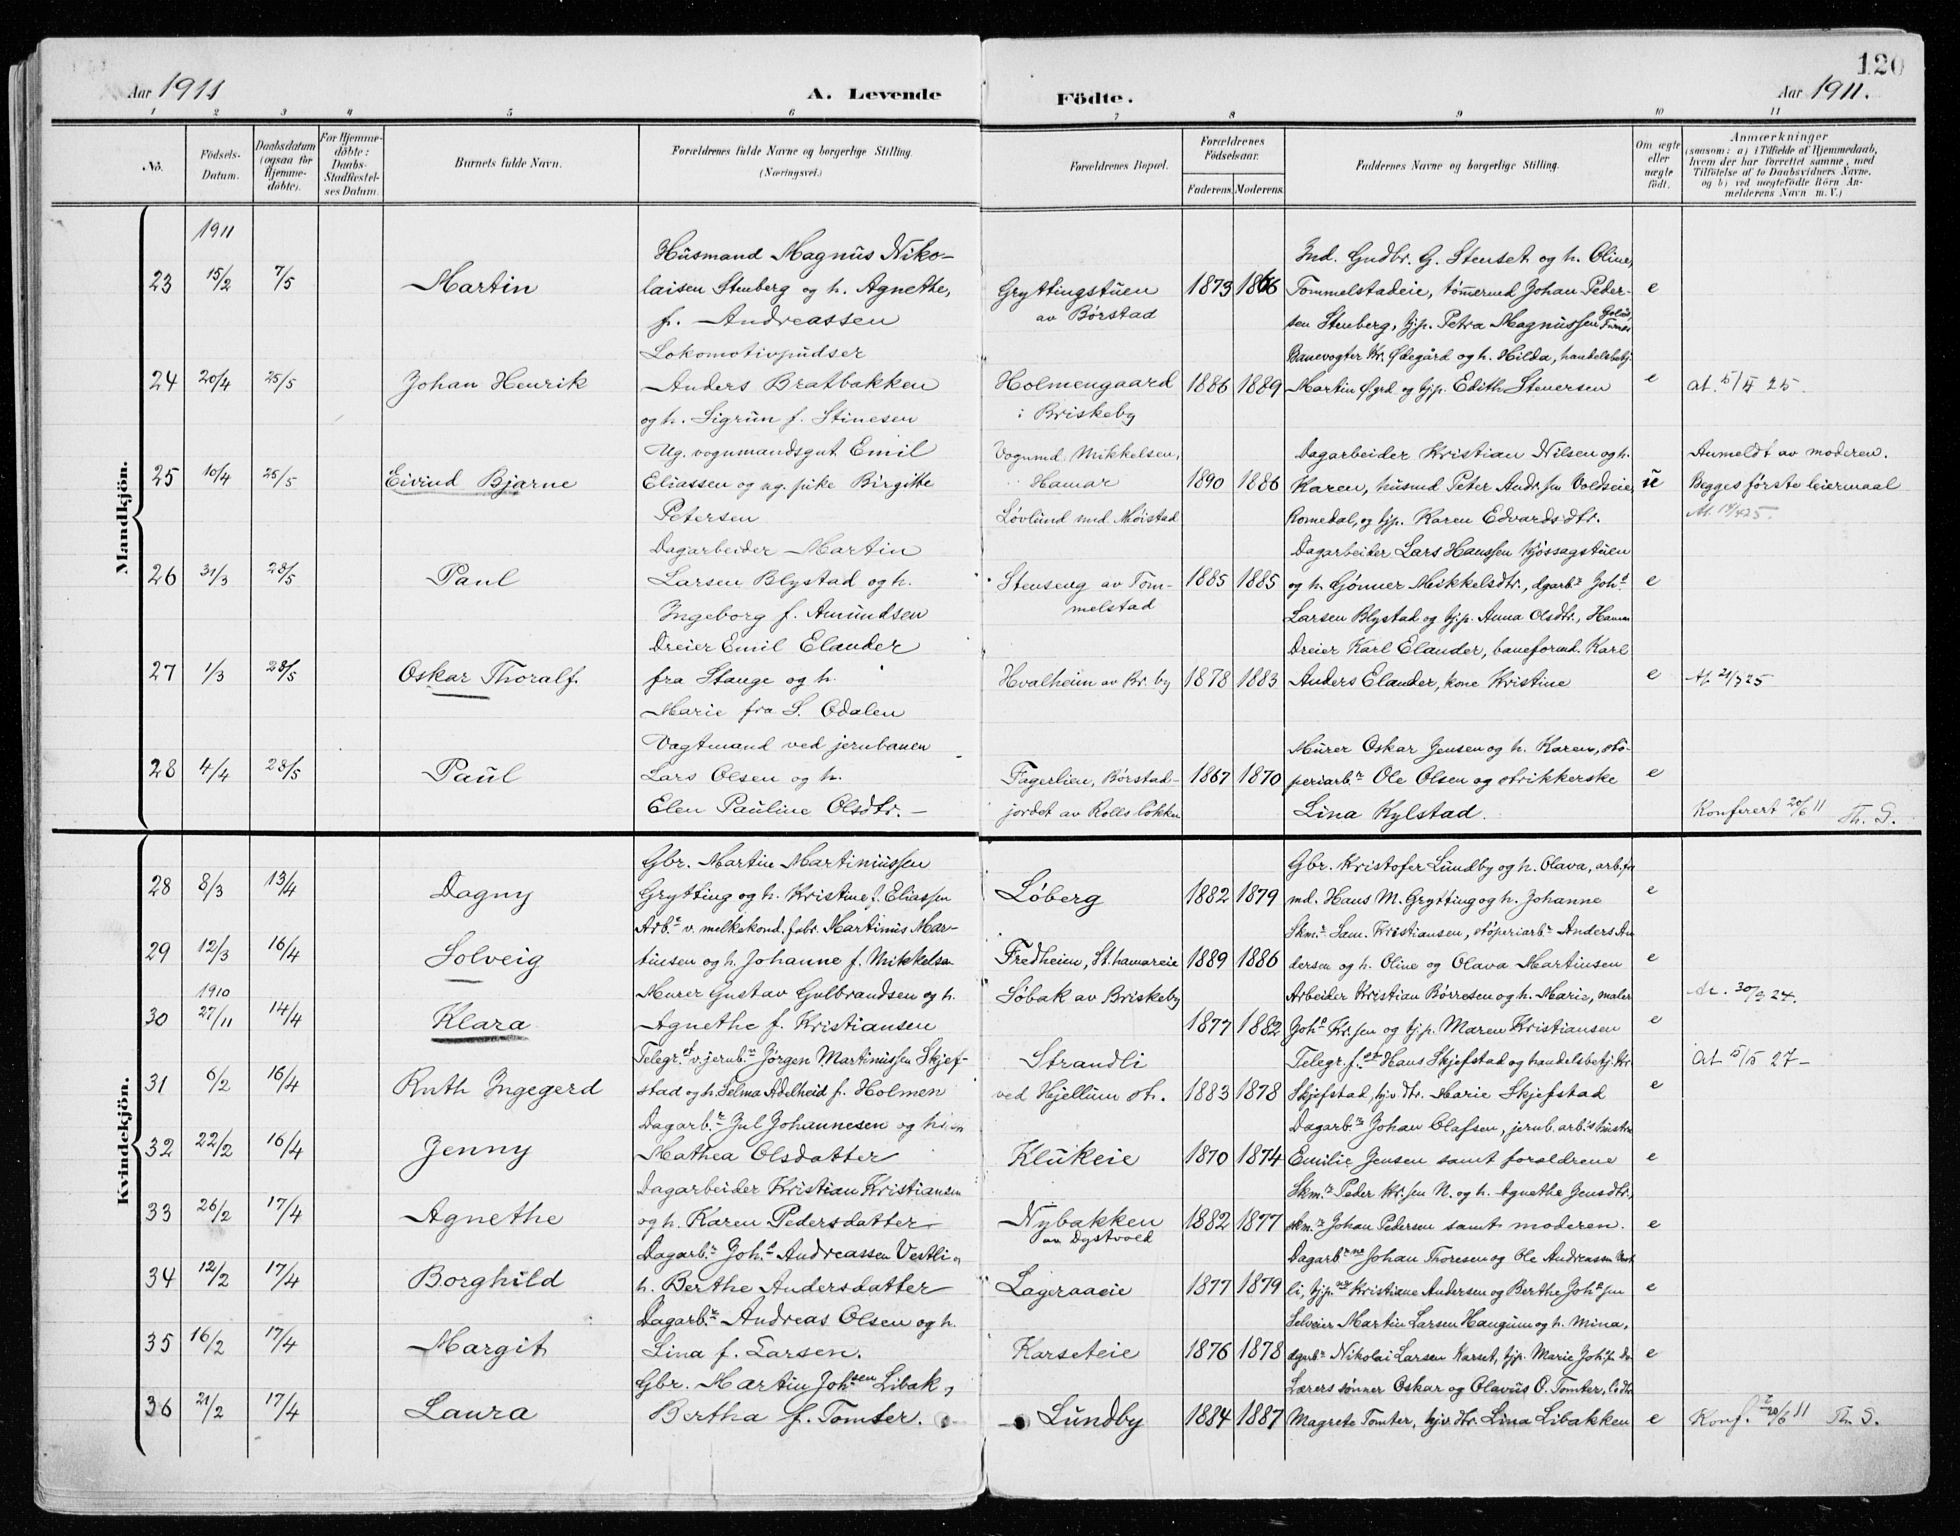 120
Aar 1911
A. Levende Födte.
Aar 1911.
1 2 3 4 5 6 7 8 9 10 11
No.
Födsels-Datum.
Daabsdatum (ogsaa for Hjemme-döbte).
For Hjemme-döbte: Daabs-Stadfæstel-ses Datum.
Barnets fulde Navn.
Forældrenes fulde Navne og borgerlige Stilling. (Næringsvei.)
Forældrenes Bopæl.
Forældrenes Födselsaar.
Faderens. Moderens.
Faddernes Navne og borgerlige Stilling.
Om ægte eller uægte födt.
Anmærkninger
(saasom: a) i Tilfælde af Hjemmedaab, hvem der har forrettet samme, med Tilföielse af to Daabsvidners Navne, og b) ved uægtefödte Börn An-melderens Navn m. V.)
Mandkjön.
1911
23 15/2 7/5 Martin
Husmand Magnus Niko-
laisen Stenberg og h. Agnethe,
f. Andreassen
Gryttingstuen
av Børstad
1873 1866
Ind. Gudbr. G. Stenset og h. Oline,
Tommelstadeie, tømermd Johan Peder-
sen Stenberg, tjp. Petra Magnussen
e
24 20/4 25/5 Johan Henrik
Lokomotivpudser
Anders Bratbakken
og h. Sigrun f. Stinesen
Holmengaard
i Briskeby
1886 1889
Banevogter Kr. Ødegård og h. Hilda, handelsbetj.
Martin Øgrd og tjp. Edith Stenersen
e
at. 5/5 25.
25 10/4 25/5 Eivind Bjarne
Ug. vognmandsgut Emil
Eliassen og ug. pike Birgitte
Petersen
Vognmd. Mikkelsen,
Hamar
Løvlund nd. Møistad
1890 1886
Dagarbeider Kristian Nilsen og h.
Karen, husmd Peter Andr.sen Voldseie,
Romedal, og tjp. Karen Edvardsdtr.
u
Anmeldt av moderen.
Begges første leiermaal
26 31/3 28/5 Paul
Dagarbeider Martin
Larsen Blystad og h.
Ingeborg f. Amundsen
Stenseng av Tom-
melstad
1885 1885
Dagarbeider Lars Hanssen Kjøssagstuen
og h. Gjønner Mikkelsdtr., dgarb.r Joh.s
Larsen Blystad og tjp. Anna Olsdtr., Hamar
e
27 1/3 28/5 Oskar Thoralf.
Dreier Emil Elander
fra Stange og h.
Marie fra S. Odalen
Hvalheim av Br.by
1878 1883
Dreier Karl Elander, baneformd. Karl
Anders Elander, kone Kristine
e
At. 21/7 25
28 4/4 28/5 Paul
Vagtmand ved jernbanen
Lars Olsen og h.
Elen Pauline Olsdtr.
Fagerlien, Børstad-
jordet av Rollsløkken
1867 1870
Murer Oskar Jensen og h. Karen, stø-
periarb.r Ole Olsen og strikkerske
Lina Kylstad.
e
Konferert 20/6 11 Th. S.
Kvindekjön.
28 8/3 13/4 Dagny
Gbr. Martin Martiniussen
Grytting og h. Kristine f. Eliassen
Løberg
1882 1879
Gbr. Kristofer Lundby og h. Olava, arb.for
md. Hans M. Grytting og h. Johanne
e
29 12/3 16/4 Solveig
Arb.r v. melkekond.fabr. Martinus Mar-
tinsen og h. Johanne f. Mikkelsen
Fredheim, St.hamareie
1889 1886
Skm.r Sam. Kristiansen, støperiarb.r Anders An
dersen og h. Oline og Olava Martinsen
e
1910
30 27/11 14/4 Klara
Murer Gustav Gulbrandsen og h.
Agnethe f. Kristiansen
Søbak av Briskeby
1877 1882
Arbeider Kristian Børresen og h. Marie, maler
Joh.s Kr.sen og tjp. Maren Kristiansen
e
At. 30/9 24.
31 6/2 16/4 Ruth Ingegerd
Telegr.st v. jernb.n Jørgen Martinussen Skjef-
stad og h. Selma Adelheid f. Holmen
Strandli
ved Hjellum st.
1883 1878
Telegr.f. Hans Skjefstad og handelsbetj. Kr
Skjefstad, tjv.dtr. Marie Skjefstad
e
At 5/5 27
32 22/2 16/4 Jenny
Dagarb.r Jul Johannesen og h
Mathea Olsdatter
Klukeie
1870 1874
Dagarb.r Johan Olafsen, jernb.arb.s hustru
Emilie Jensen samt foreldrene
e
33 26/2 17/4 Agnethe
Dagarbeider Kristian Kristiansen
og h. Karen Pedersdatter
Nybakken
av Dystvold
1882 1877
Skm.r Peder Kr.sen N. og h. Agnethe Jensdtr.,
skm.r Johan Pedersen samt moderen.
e
34 12/2 17/4 Borghild
Dagarb.r Joh.s Andreassen Vestli,
h. Berthe Andersdatter
Lageraaeie
1877 1879
Dagarb.rne Johan Thoresen og Ole Andreassen Vest
li, tjp.ne Kristiane Andersen og Berthe Joh.sen
e
35 16/2 17/4 Margit
Dagarb.r Andreas Olsen og h.
Lina f. Larsen.
Karseteie
1876 1878
Selveier Martin Larsen Haugum og h. Mina,
dgarb.r Nikolai Larsen Karset, tjp. Marie Joh.s
e
36 21/2 17/4 Laura
Gbr. Martin Joh.sen Libak,
Bertha f. Tomter.
Lundby
1884 1887
Lærers sønner Oskar og Olavus O. Tomter,
Magrete Tomter, tjv.dtr. Lina Libakken
e
Konf. 20/6 11 Th. S.